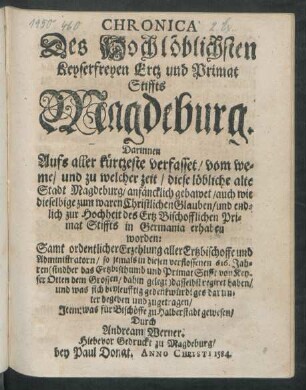 CHRONICA
Des Hochlöblichsten
Keyserfreyen Ertz und Primat
Stiffts
Magdeburg.
Darinnen
Auffs aller kürtzeste verfasset / vom we-
me / und zu welcher zeit / diese löbliche alte
Stadt Magdeburg / anfäncklich gebawet / auch wie
dieselbige zum waren Christlichen Glauben / und end-
lich zur Hochheit des Ertz Bischofflichen Pri-
mat Stiffts in Germania erhaben
worden:
Samt ordentlicher Erzehlung aller Ertzbischoffe und
Administratorn / so jemals in diesen verflossenen 616. Jah-
ren / sindher das Ertzbisthumb und Primat Stifft von Key-
ser Otten dem Grossen / dahin gelegt / dasselbst regiret haben /
und was sich beyleufftig gedenckwirdiges darun-
ter begeben und zugetragen /
Item: was für Bischöffe zu Halberstadt gewesen /
Durch
Andream Werner.
Hiebevor Gedruckt zu Magdeburg /
bey Paul Donat. ANNO CHRISTI 1584.